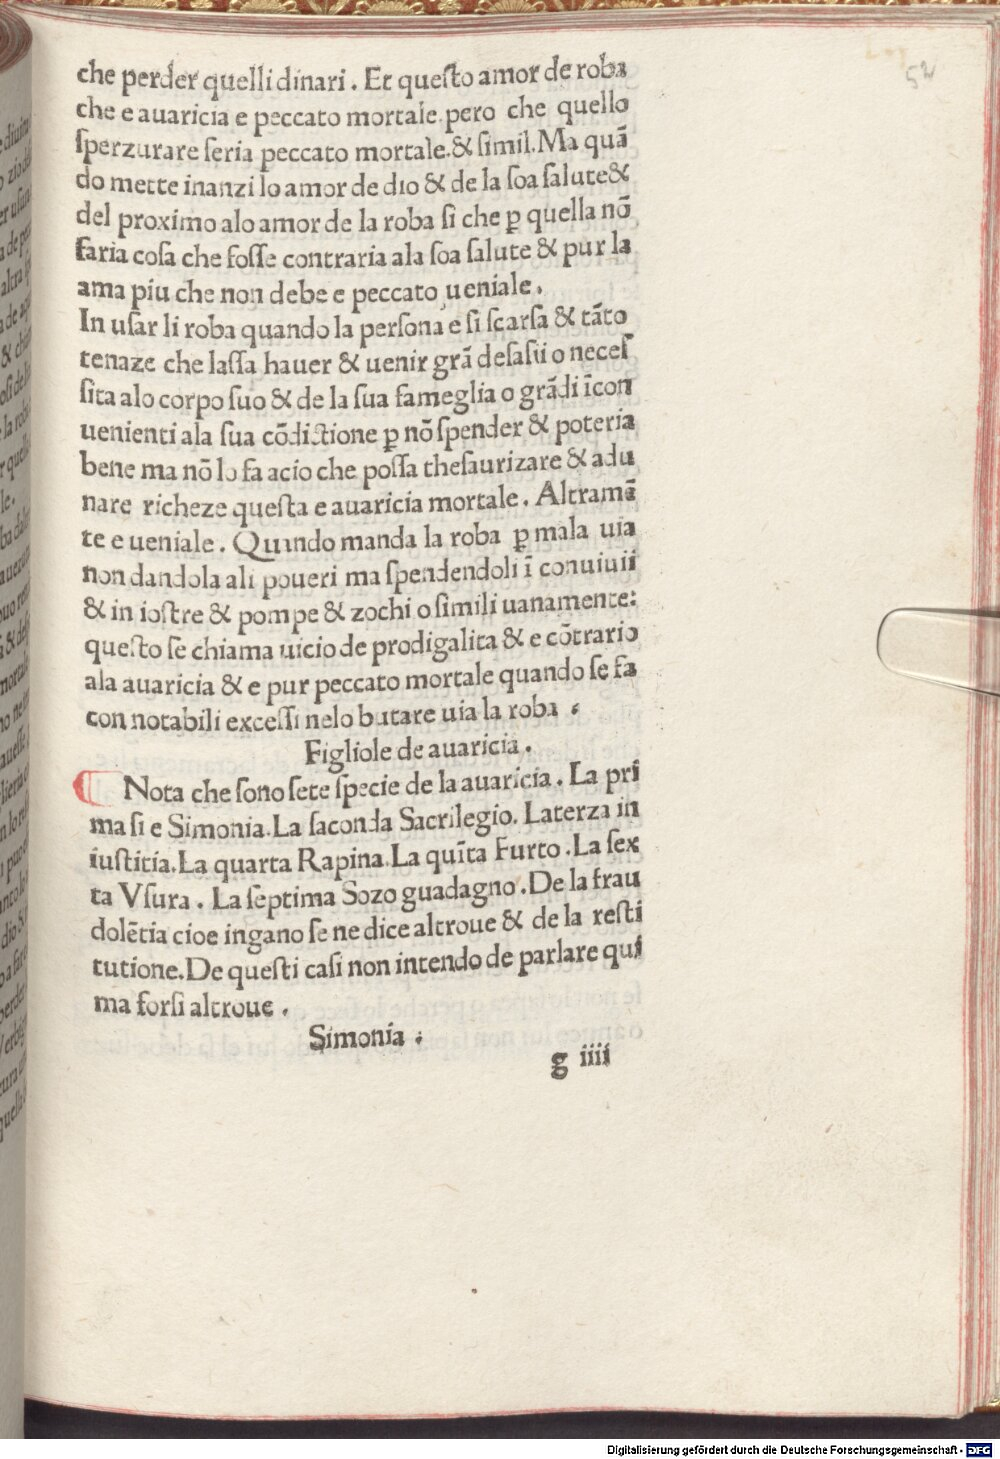 52
che perder quelli dinari. Et queſto amor de roba
che e auaricia e peccato mortale pero che quello
ſperzurare ſeria peccato mortale.& ſimil.Ma quā
do mette inanzi lo amor de dio & de la ſoa ſalute&
del proximo alo amor de la roba ſi che ꝑ quella nō
faria coſa che foſſe contraria ala ſoa ſalute & pur la
ama piu che non debe e peccato ueniale.
In uſar li roba quando la perſona e ſi ſcarſa & tāto
tenaze che laſſa hauer & uenir grā deſaſii o neceſ
ſita alo corpo ſuo & de la ſua fameglia o grādi īcon
uenienti ala ſua cōdictione ꝑ nō ſpender & poteria
bene ma nō lo fa acio che poſſa theſaurizare & adu
nare richeze queſta e auaricia mortale. Altramē
te e ueniale. Quando manda la roba ꝑ mala uia
non dandola ali poueri ma ſpendendoli ī conuiuii
& in ioſtre & pompe & zochi o ſimili uanamente:
queſto ſe chiama uicio de prodigalita & e cōtrario
ala auaricia & e pur peccato mortale quando ſe fa
con notabili exceſſi nelo butare uia la roba.
Figliole de auaricia.
Nota che ſono ſete ſpecie de la auaricia. La pri
ma ſi e Simonia.La ſaconda Sacrilegio. Laterza in
iuſtitia.La quarta Rapina.La quīta Furto.La ſex
ta Vſura. La ſeptima Sozo guadagno.De la frau
dolētia cioe ingano ſe ne dice altroue & de la reſti
tutione.De queſti caſi non intendo de parlare qui
ma forſi altroue.
Simonia.
g iiii
Digitalisierung gefördert durch die Deutsche Forschungsgemeinschaft - DFG